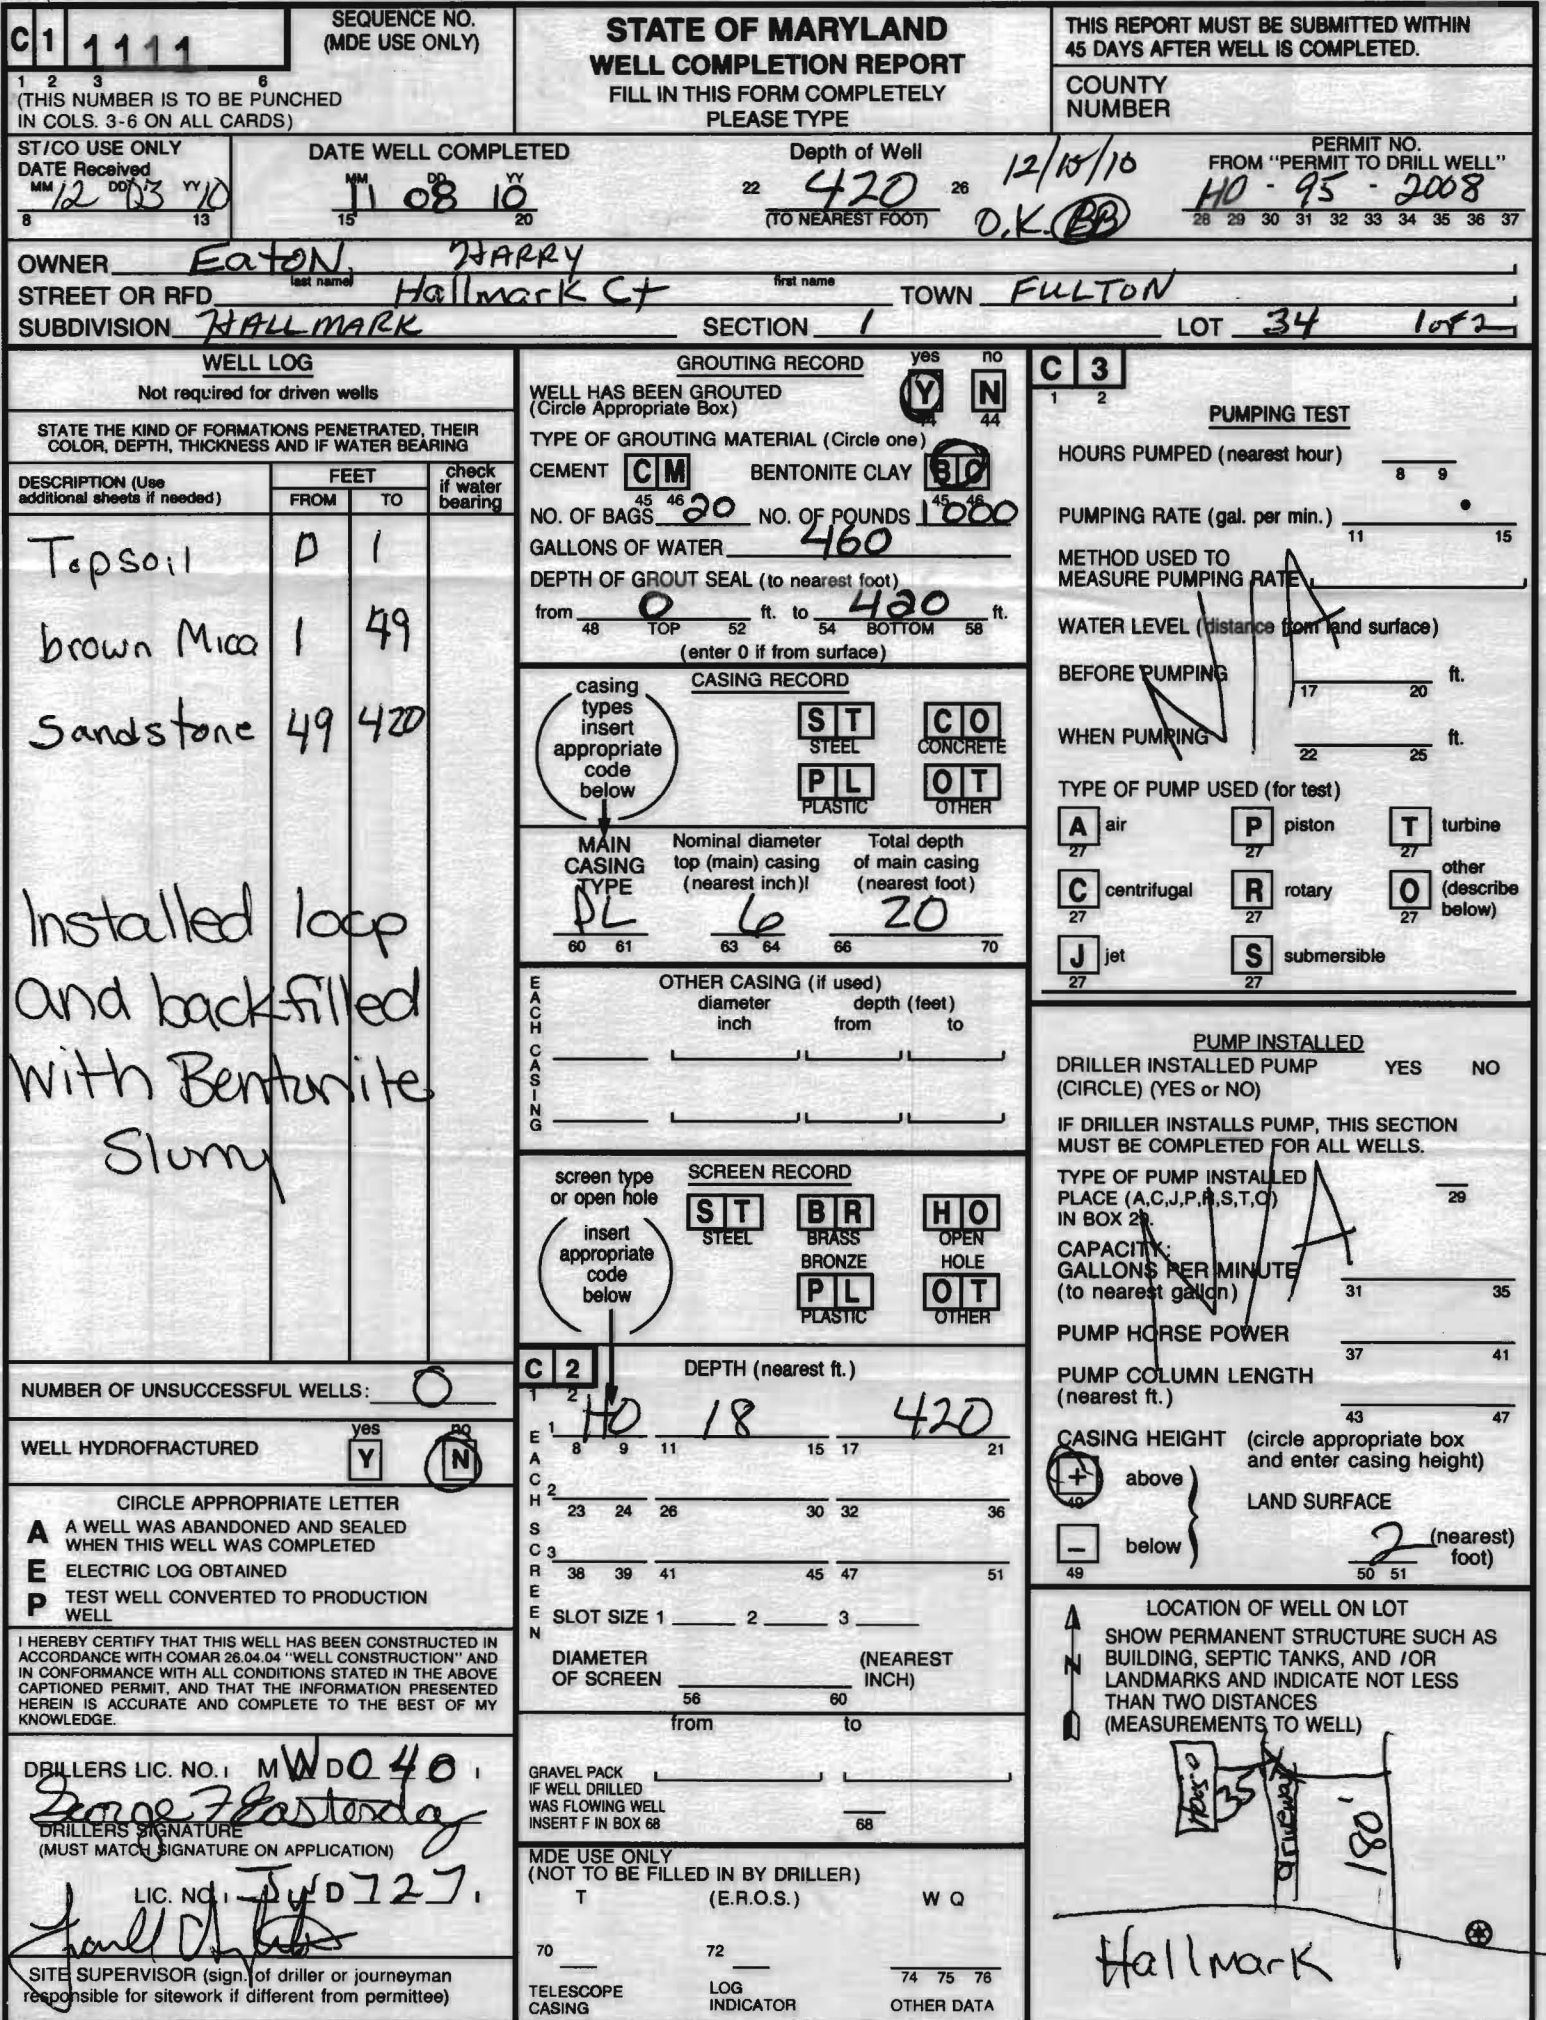 C 1 1111
SEQUENCE NO.
(MDE USE ONLY)
1 2 3 6
(THIS NUMBER IS TO BE PUNCHED
IN COLS. 3-6 ON ALL CARDS)
STATE OF MARYLAND
WELL COMPLETION REPORT
FILL IN THIS FORM COMPLETELY
PLEASE TYPE
THIS REPORT MUST BE SUBMITTED WITHIN
45 DAYS AFTER WELL IS COMPLETED.
COUNTY
NUMBER
ST/CO USE ONLY
DATE Received
MM 12 DD 03 YY 10
8 13
DATE WELL COMPLETED
MM DD YY
11 08 10
15 20
Depth of Well
22 420 26
(TO NEAREST FOOT)
12/15/10
O.K. BB
PERMIT NO.
FROM "PERMIT TO DRILL WELL"
HO - 95 - 2008
28 29 30 31 32 33 34 35 36 37
OWNER Eaton, HARRY
last name first name
STREET OR RFD Hallmark Ct TOWN FULTON
SUBDIVISION HALLMARK SECTION 1 LOT 34 1 of 2
WELL LOG
Not required for driven wells
STATE THE KIND OF FORMATIONS PENETRATED, THEIR
COLOR, DEPTH, THICKNESS AND IF WATER BEARING
DESCRIPTION (Use
additional sheets if needed)
FEET
FROM TO
check
if water
bearing
Topsoil 0 1
brown Mica 1 49
Sandstone 49 420
Installed loop
and backfilled
with Bentonite
Slurry
NUMBER OF UNSUCCESSFUL WELLS: 0
WELL HYDROFRACTURED
yes no
Y N
CIRCLE APPROPRIATE LETTER
A A WELL WAS ABANDONED AND SEALED
WHEN THIS WELL WAS COMPLETED
E ELECTRIC LOG OBTAINED
P TEST WELL CONVERTED TO PRODUCTION
WELL
I HEREBY CERTIFY THAT THIS WELL HAS BEEN CONSTRUCTED IN
ACCORDANCE WITH COMAR 26.04.04 "WELL CONSTRUCTION" AND
IN CONFORMANCE WITH ALL CONDITIONS STATED IN THE ABOVE
CAPTIONED PERMIT, AND THAT THE INFORMATION PRESENTED
HEREIN IS ACCURATE AND COMPLETE TO THE BEST OF MY
KNOWLEDGE.
DRILLERS LIC. NO. MWD040
George F Easterday
DRILLERS SIGNATURE
(MUST MATCH SIGNATURE ON APPLICATION)
LIC. NO. JWD727
SITE SUPERVISOR (sign. of driller or journeyman
responsible for sitework if different from permittee)
GROUTING RECORD
yes no
WELL HAS BEEN GROUTED
(Circle Appropriate Box)
Y N
44 44
TYPE OF GROUTING MATERIAL (Circle one)
CEMENT CM BENTONITE CLAY BC
45 46 45 46
NO. OF BAGS 20 NO. OF POUNDS 1000
GALLONS OF WATER 460
DEPTH OF GROUT SEAL (to nearest foot)
from 0 ft. to 420 ft.
48 TOP 52 54 BOTTOM 58
(enter 0 if from surface)
CASING RECORD
casing
types
insert
appropriate
code
below
ST CO
STEEL CONCRETE
PL OT
PLASTIC OTHER
MAIN
CASING
TYPE
Nominal diameter
top (main) casing
(nearest inch)!
Total depth
of main casing
(nearest foot)
PL 6 20
60 61 63 64 66 70
EACH CASING
OTHER CASING (if used)
diameter depth (feet)
inch from to
SCREEN RECORD
screen type
or open hole
insert
appropriate
code
below
ST BR HO
STEEL BRASS OPEN
BRONZE HOLE
PL OT
PLASTIC OTHER
C 2
1 2
DEPTH (nearest ft.)
EACH SCREEN
1 HO 18 420
8 9 11 15 17 21
2
23 24 26 30 32 36
3
38 39 41 45 47 51
SLOT SIZE 1 2 3
DIAMETER
OF SCREEN
(NEAREST
INCH)
56 60
from to
GRAVEL PACK
IF WELL DRILLED
WAS FLOWING WELL
INSERT F IN BOX 68
68
MDE USE ONLY
(NOT TO BE FILLED IN BY DRILLER)
T (E.R.O.S.) W Q
70 72
74 75 76
TELESCOPE
CASING
LOG
INDICATOR
OTHER DATA
C 3
1 2
PUMPING TEST
HOURS PUMPED (nearest hour)
8 9
PUMPING RATE (gal. per min.)
11 15
METHOD USED TO
MEASURE PUMPING RATE
N/A
WATER LEVEL (distance from land surface)
BEFORE PUMPING ft.
17 20
WHEN PUMPING ft.
22 25
TYPE OF PUMP USED (for test)
A air P piston T turbine
27 27 27
C centrifugal R rotary O other
(describe
below)
27 27 27
J jet S submersible
27 27
PUMP INSTALLED
DRILLER INSTALLED PUMP YES NO
(CIRCLE) (YES or NO)
IF DRILLER INSTALLS PUMP, THIS SECTION
MUST BE COMPLETED FOR ALL WELLS.
TYPE OF PUMP INSTALLED
PLACE (A,C,J,P,R,S,T,O)
IN BOX 29.
29
N/A
CAPACITY:
GALLONS PER MINUTE
(to nearest gallon)
31 35
PUMP HORSE POWER
37 41
PUMP COLUMN LENGTH
(nearest ft.)
43 47
CASING HEIGHT (circle appropriate box
and enter casing height)
+ above
49
LAND SURFACE
- below
49
2 (nearest)
foot)
50 51
LOCATION OF WELL ON LOT
SHOW PERMANENT STRUCTURE SUCH AS
BUILDING, SEPTIC TANKS, AND /OR
LANDMARKS AND INDICATE NOT LESS
THAN TWO DISTANCES
(MEASUREMENTS TO WELL)
N
35
driveway
180'
Hallmark